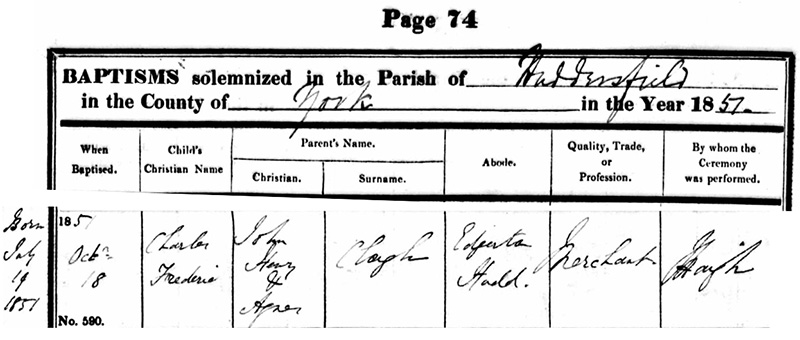 Page 74
BAPTISMS solemnized in the Parish of Huddersfield
in the County of York in the Year 1851.
When Baptised.
Child's Christian Name
Parent's Name.
Christian.
Surname.
Abode.
Quality, Trade, or Profession.
By whom the Ceremony was performed.
Born
July
19
1851
1851
Octr
18
No. 590.
Charles
Frederic
John
Henry
&
Agnes
Clough
Edgerton
Hudd.
Merchant
Haigh